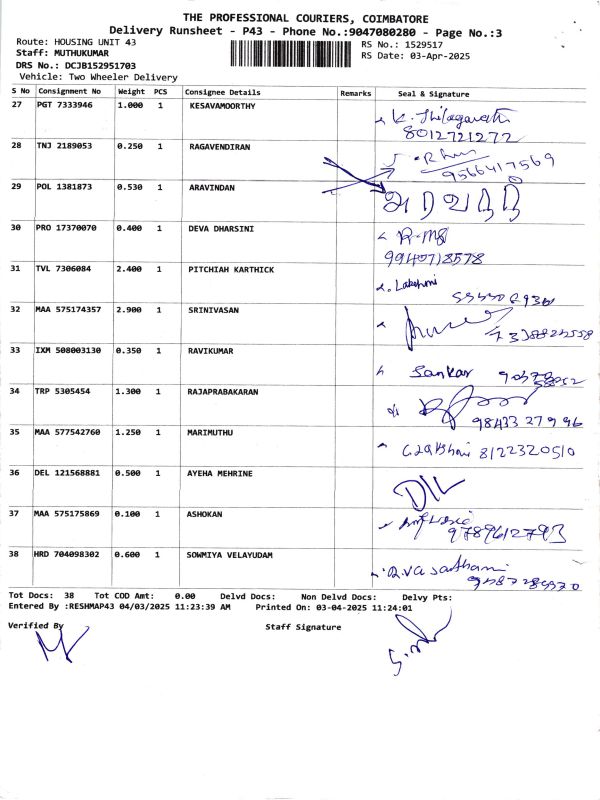 THE PROFESSIONAL COURIERS, COIMBATORE
Delivery Runsheet - P43 - Phone No.:9047080280 - Page No.:3
Route: HOUSING UNIT 43 RS No.: 1529517
Staff: MUTHUKUMAR RS Date: 03-Apr-2025
DRS No.: DCJB152951703
Vehicle: Two Wheeler Delivery
S No Consignment No Weight PCS Consignee Details Remarks Seal & Signature
27 PGT 7333946 1.000 1 KESAVAMOORTHY
K. Thilagavathi
8012721272
28 TNJ 2189053 0.250 1 RAGAVENDIRAN
9566417569
29 POL 1381873 0.530 1 ARAVINDAN
30 PRO 17370070 0.400 1 DEVA DHARSINI
9940718578
31 TVL 7306084 2.400 1 PITCHIAH KARTHICK
Lakshmi
32 MAA 575174357 2.900 1 SRINIVASAN
33 IXM 508003130 0.350 1 RAVIKUMAR
Sankar
34 TRP 5305454 1.300 1 RAJAPRABAKARAN
98433 27996
35 MAA 577542760 1.250 1 MARIMUTHU
8122320510
36 DEL 121568881 0.500 1 AYEHA MEHRINE
37 MAA 575175869 0.100 1 ASHOKAN
9789612793
38 HRD 704098302 0.600 1 SOWMIYA VELAYUDAM
Tot Docs: 38 Tot COD Amt: 0.00 Delvd Docs: Non Delvd Docs: Delvy Pts:
Entered By :RESHMAP43 04/03/2025 11:23:39 AM Printed On: 03-04-2025 11:24:01
Verified By Staff Signature